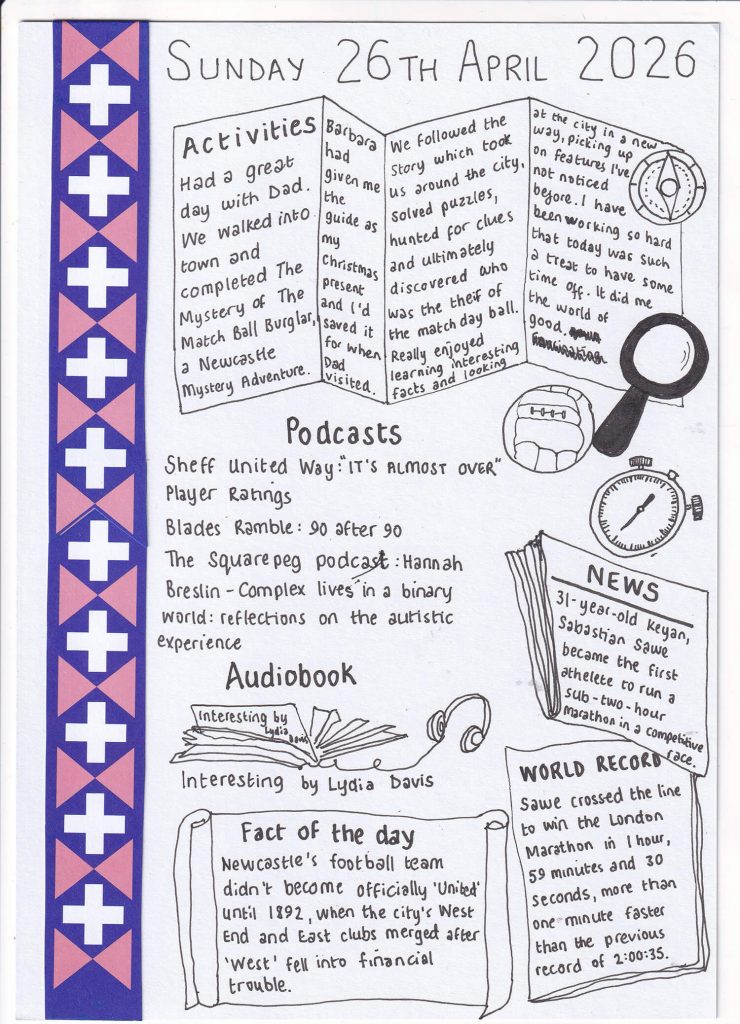 SUNDAY 26TH APRIL 2026
Activities
Had a great
day with Dad.
We walked into
town and
completed The
Mystery of The
Match Ball Burglar,
a Newcastle
Mystery Adventure.
Barbara
had
given me
the
guide as
my
Christmas
present
and I'd
saved it
for when
Dad
visited.
We followed the
story which took
us around the city,
solved puzzles,
hunted for clues
and ultimately
discovered who
was the theif of
the match day ball.
Really enjoyed
learning interesting
facts and looking
at the city in a new
way, picking up
on features I've
not noticed
before. I have
been working so hard
that today was such
a treat to have some
time off. It did me
the world of
good.
Podcasts
Sheff United Way: "IT'S ALMOST OVER"
Player Ratings
Blades Ramble: 90 after 90
The Squarepeg podcast: Hannah
Breslin - Complex lives in a binary
world: reflections on the autistic
experience
Audiobook
Interesting by
Lydia
Davis
Interesting by Lydia Davis
Fact of the day
Newcastle's football team
didn't become officially 'United'
until 1892, when the city's West
End and East clubs merged after
'West' fell into financial
trouble.
NEWS
31-year-old Keyan,
Sabastian Sawe
became the first
athelete to run a
sub-two-hour
Marathon in a competitive
race.
WORLD RECORD
Sawe crossed the line
to win the London
Marathon in 1 hour,
59 minutes and 30
seconds, more than
one minute faster
than the previous
record of 2:00:35.